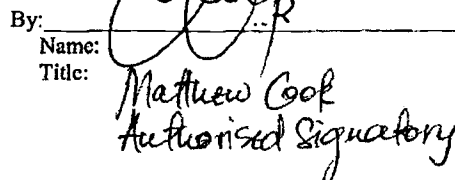 By:
Name:
Title:
Matthew Cook
Authorised Signatory